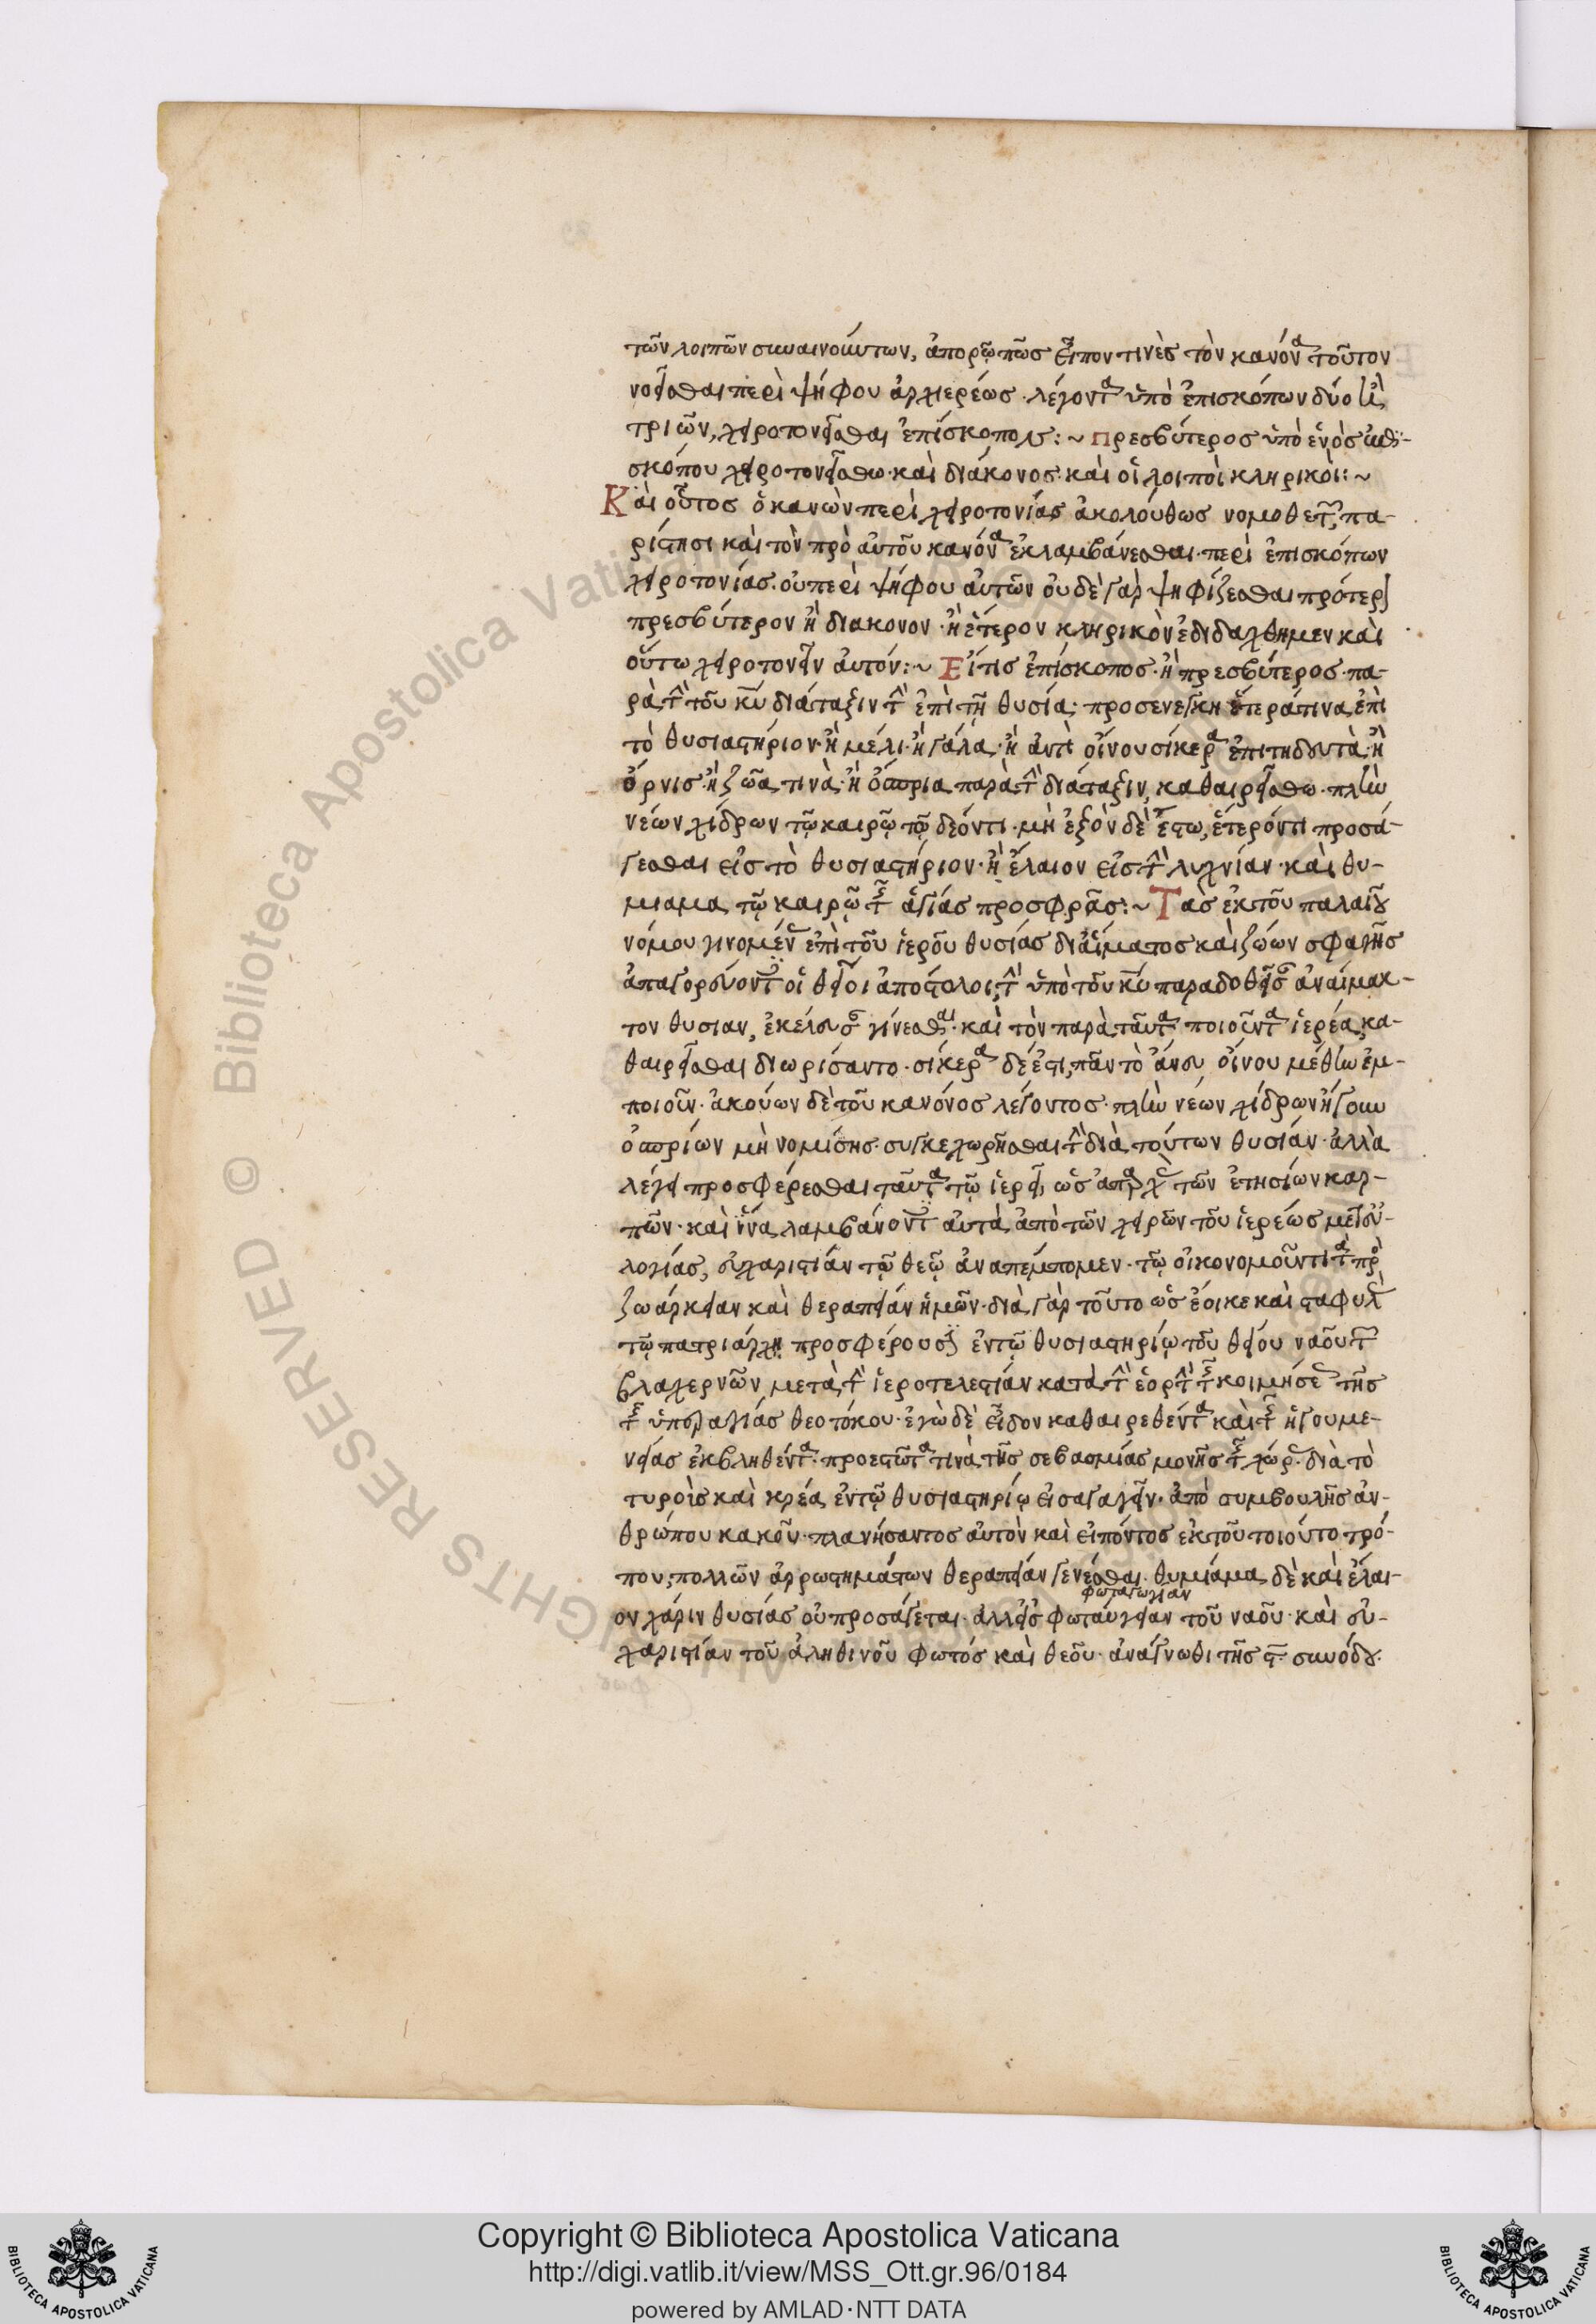 τῶν λοιπῶν συναινούντων, ἀπορῶ πῶς εἶπον τινὲς τὸν κανόνα τοῦτον
νοεῖσθαι περὶ ψήφου ἀρχιερέως· λέγοντα ὑπὸ ἐπισκόπων δύο ἢ
τριῶν, χειροτονεῖσθαι ἐπίσκοπον :~ Πρεσβύτερος ὑπὸ ἑνὸς ἐπι-
σκόπου χειροτονείσθω· καὶ διάκονος· καὶ οἱ λοιποὶ κληρικοί :~
Καὶ οὗτος ὁ κανὼν περὶ χειροτονίας ἀκολούθως νομοθετῶν, πα-
ρίστησι καὶ τὸν πρὸ αὐτοῦ κανόνα ἐκλαμβάνεσθαι· περὶ ἐπισκόπων
χειροτονίας· οὐ περὶ ψήφου αὐτῶν οὐδὲ γὰρ ψηφίζεσθαι πρότερον
πρεσβύτερον ἢ διάκονον· ἢ ἕτερον κληρικὸν ἐδιδάχθημεν καὶ
οὕτω χειροτονεῖν αὐτόν :~ Εἴ τις ἐπίσκοπος· ἢ πρεσβύτερος· πα-
ρὰ τὴν τοῦ κυ διάταξιν τὴν ἐπὶ τῇ θυσίᾳ· προσενέγκη ἕτερά τινα ἐπὶ
τὸ θυσιαστήριον· ἢ μέλι· ἢ γάλα· ἢ ἀντὶ οἴνου σίκερα ἐπιτηδευτὰ· ἢ
ὄρνις· ἢ ζῶα τινὰ· ἢ ὄσπρια παρὰ τὴν διάταξιν, καθαιρείσθω· πλὴν
νέων χίδρων τῷ καιρῷ τῷ δέοντι· μὴ ἐξὸν δὲ ἔστω, ἕτερόν τι προσά-
γεσθαι εἰς τὸ θυσιαστήριον· ἢ ἔλαιον εἰς τὴν λυχνίαν· καὶ θυ-
μίαμα τῷ καιρῷ τῆς ἁγίας προσφορᾶς :~ Τὰς ἐκ τοῦ παλαιοῦ
νόμου γινομένας ἐπὶ τοῦ ἱεροῦ θυσίας δι' αἵματος καὶ ζώων σφαγῆς
ἀπαγορεύοντες οἱ θεῖοι ἀπόστολοι, τὴν ὑπὸ τοῦ κυ παραδοθεῖσαν ἀναίμακ-
τον θυσίαν, ἐκέλευσαν γίνεσθαι· καὶ τὸν παρὰ ταῦτα ποιοῦντα ἱερέα, κα-
θαιρεῖσθαι διωρίσαντο· σίκερα δέ ἐστι, πᾶν τὸ ἄνευ οἴνου μέθην ἐμ-
ποιοῦν· ἀκούων δὲ τοῦ κανόνος λέγοντος· πλὴν νέων χίδρων ἤγουν
ὀσπρίων μὴ νομίσης· συγκεχωρῆσθαι τὴν διὰ τούτων θυσίαν· ἀλλὰ
λέγει προσφέρεσθαι ταῦτα τῷ ἱερεῖ, ὡς ἀπαρχὰς τῶν ἐτησίων καρ-
πῶν· καὶ ἵνα λαμβάνοντες αὐτὰ ἀπὸ τῶν χειρῶν τοῦ ἱερέως μετ' εὐ-
λογίας, εὐχαριστίαν τῷ θεῷ ἀναπέμπομεν· τῷ οἰκονομοῦντι τὰ πρὸς
ζωάρκειαν καὶ θεραπείαν ἡμῶν· διὰ γὰρ τοῦτο ὡς ἔοικε καὶ σταφυλὰς
τῷ πατριάρχῃ προσφέρουσιν ἐν τῷ θυσιαστηρίῳ τοῦ θείου ναοῦ τῶν
βλαχερνῶν μετὰ τὴν ἱεροτελεστίαν κατὰ τὴν ἑορτὴν τῆς κοιμήσεως τῆς
τῆς ὑπεραγίας θεοτόκου· ἐγὼ δὲ εἶδον καθαιρεθέντα καὶ τῆς ἡγουμε-
νείας ἐκβληθέντα· προεστῶτα τινὰ τῆς σεβασμίας μονῆς τῆς χώρας· διὰ τὸ
τυροὺς καὶ κρέα ἐν τῷ θυσιαστηρίῳ εἰσαγαγεῖν· ἀπὸ συμβουλῆς ἀν-
θρώπου κακοῦ· πλανήσαντος αὐτὸν καὶ εἰπόντος ἐκ τοῦ τοιούτο τρό-
που, πολλῶν ἀρρωστημάτων θεραπείαν γενέσθαι· θυμίαμα δὲ καὶ ἔλαι-
φωταγωγίαν
ον χάριν θυσίας οὐ προσάγεται· ἀλλ' εἰς φωταύγειαν τοῦ ναοῦ· καὶ εὐ-
χαριστίαν τοῦ ἀληθινοῦ φωτὸς καὶ θεοῦ· ἀνάγνωθι τῆς ϛ συνόδου.
Copyright © Biblioteca Apostolica Vaticana
http://digi.vatlib.it/view/MSS_Ott.gr.96/0184
powered by AMLAD·NTT DATA
BIBLIOTECA APOSTOLICA VATICANA
BIBLIOTECA APOSTOLICA VATICANA
© Biblioteca Apostolica Vaticana
ALL RIGHTS RESERVED